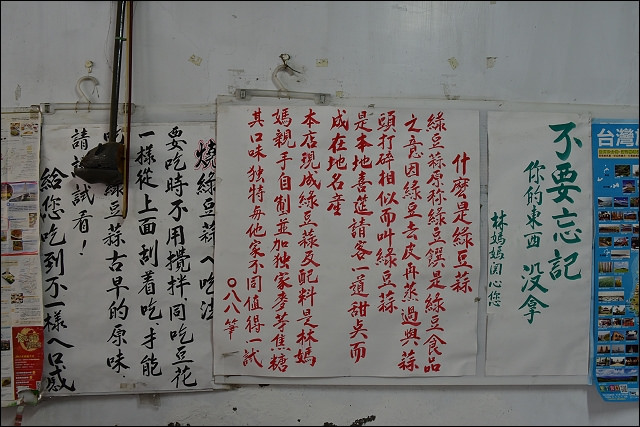 台灣
不要忘記
你的東西 沒拿
林媽媽関心您
什麼是綠豆蒜
綠豆蒜原称綠豆饌是綠豆食品
之意因綠豆去皮再蒸過與蒜
頭打碎相似而叫綠豆蒜
是本地喜筵請客一道甜点而
成在地名產
本店現成綠豆蒜及配料是林媽
媽親手自制並加独家麥芽焦糖
其口味独特与他家不同值得一試
〇八八筆
燒綠豆蒜ヘ吃法
要吃時不用攪拌.同吃豆花
一樣從上面刮着吃.才能
綠豆蒜古早的原味.
請試看！
給您吃到不一樣ヘ口感